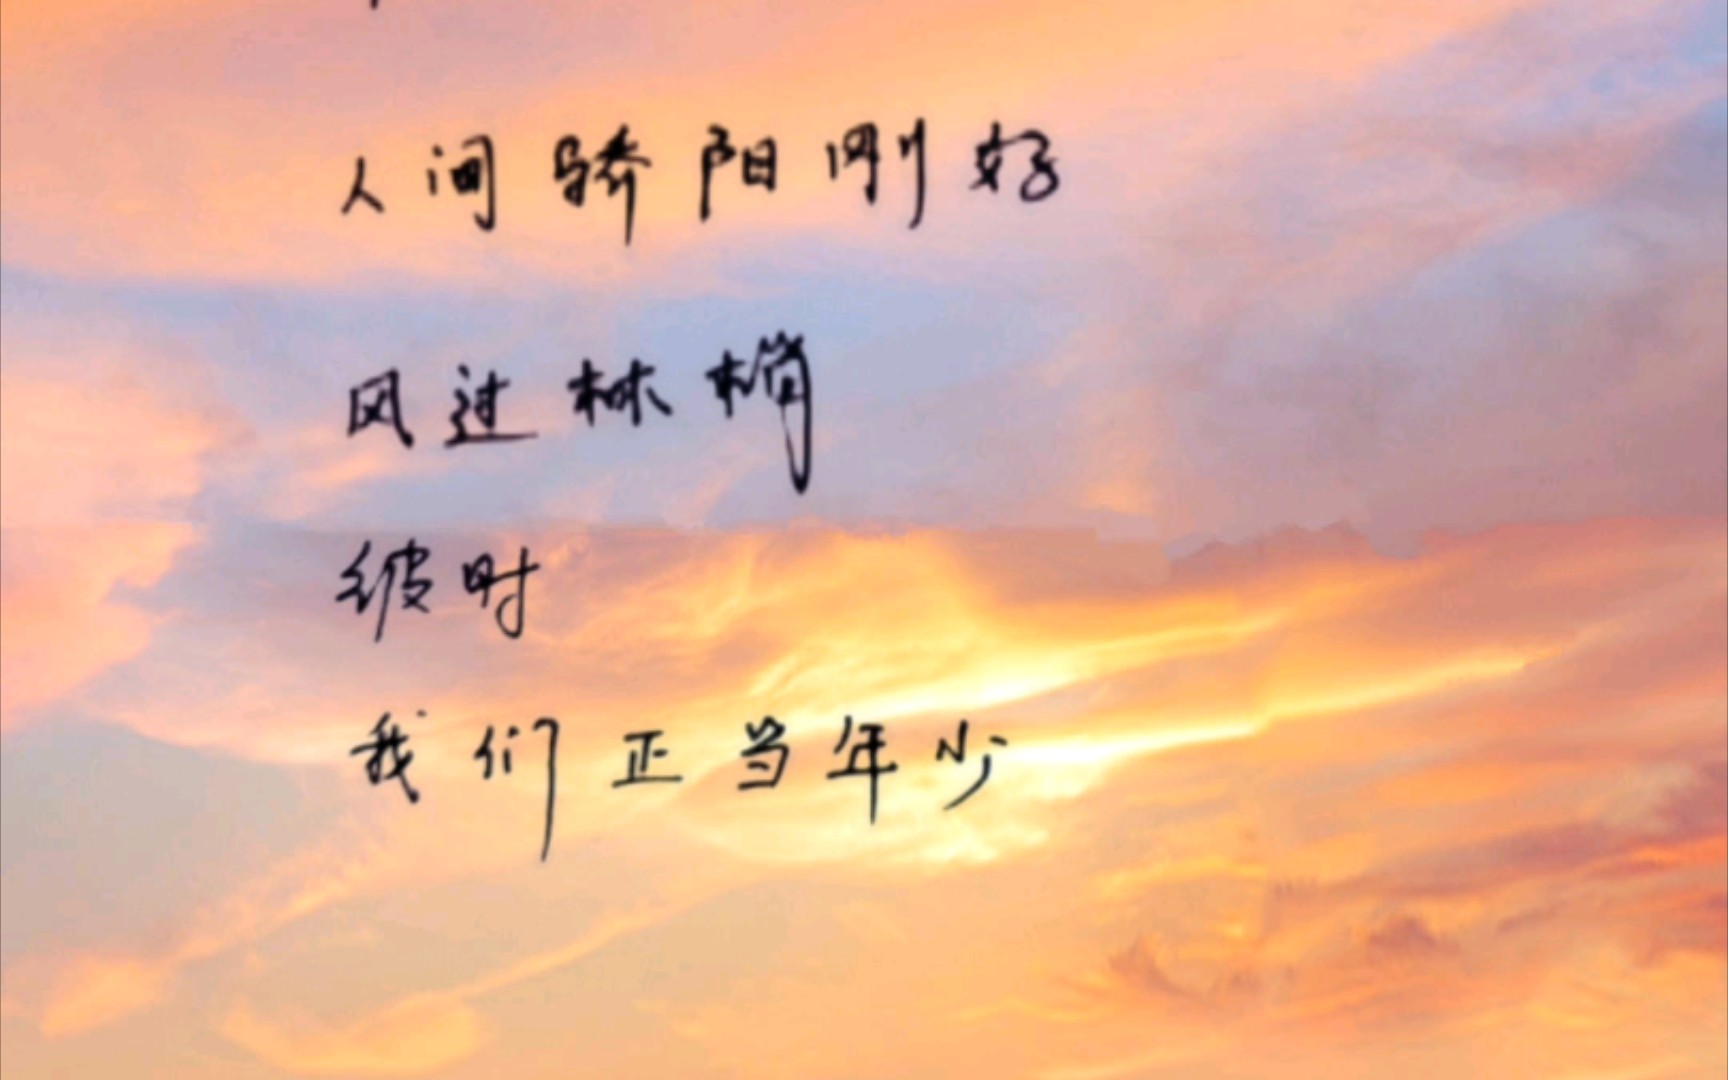 人间骄阳刚好
风过林梢
彼时
我们正当年少